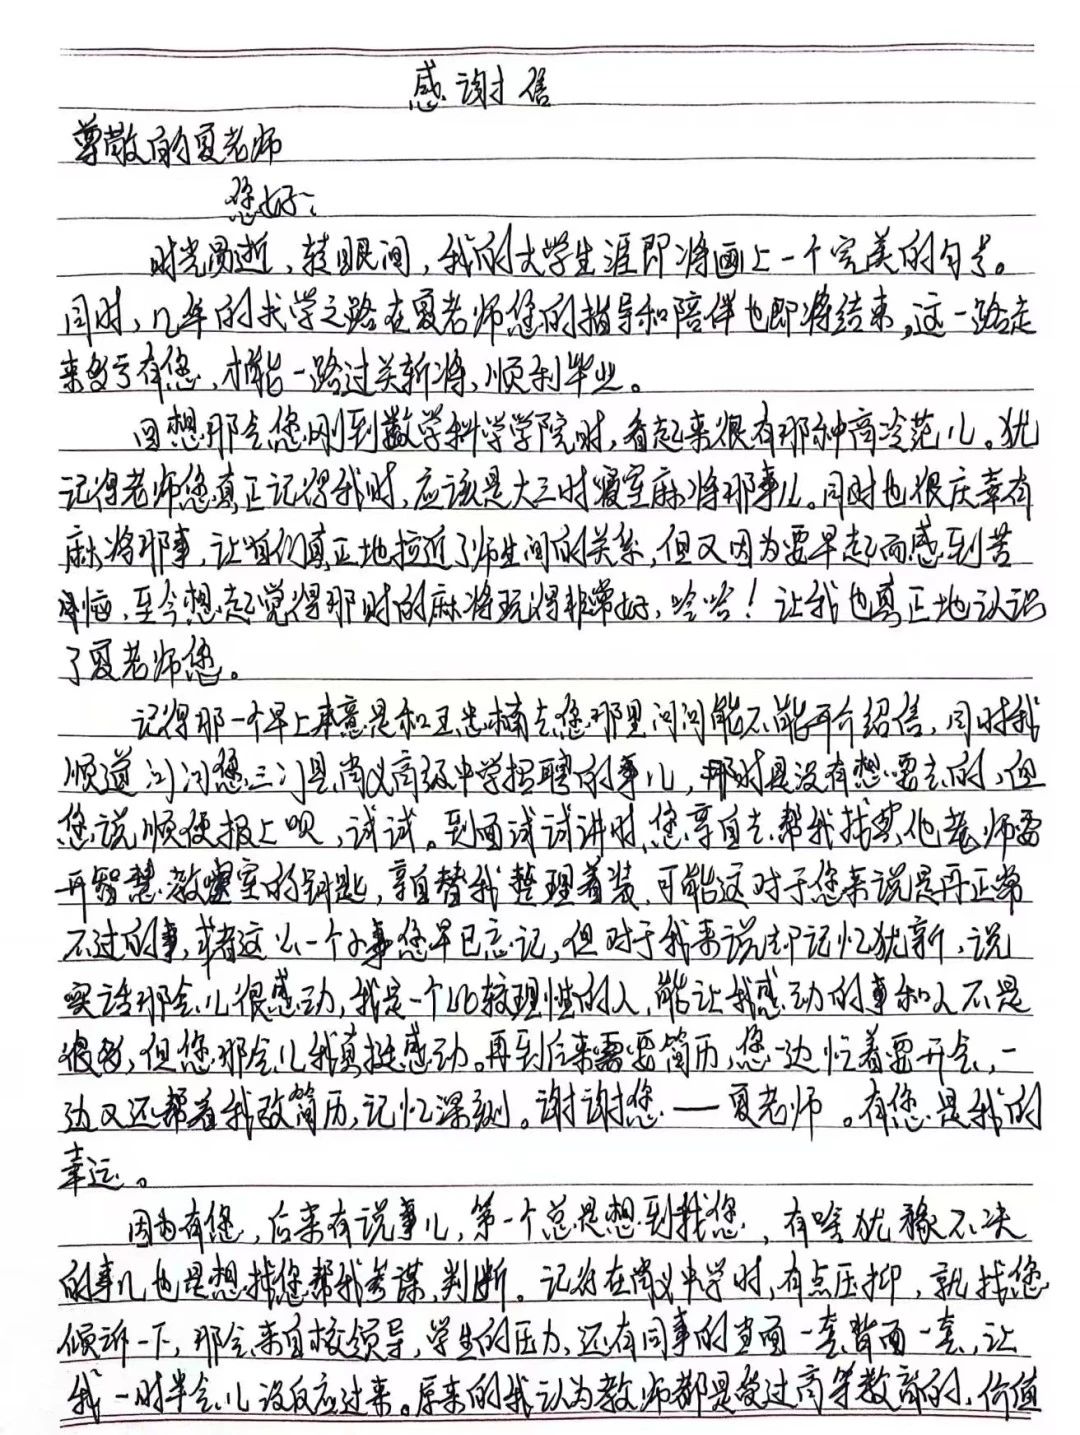 感谢信
尊敬的夏老师
您好:
时光匆逝,转眼间,我的大学生涯即将画上一个完美的句号。
同时,几年的求学之路在夏老师您的指导和陪伴也即将结束,这一路走
来多亏有您,才能一路过关斩将,顺利毕业。
回想那会您刚到数学科学学院时,看起来很有那种高冷范儿。犹
记得老师您真正记得我时,应该是大三时寝室麻将那事儿。同时也很庆幸有
麻将那事,让咱们真正地拉近了师生间的关系,但又因为要早起而感到苦
恼,至今想起觉得那时的麻将玩得非常好,哈哈!让我也真正地认识
了夏老师您。
记得那一个早上本意是和王忠楠去您那里问问能不能开介绍信,同时我
顺道问问您三门县尚义高级中学招聘的事儿,那时是没有想要去的,但
您说顺便报上呗,试试。到面试试讲时,您亲自去帮我找其他老师要
开智慧教室的钥匙,亲自替我整理着装,可能这对于您来说是再正常
不过的事,或者这么一个小事您早已忘记,但对于我来说却记忆犹新,说
实话那会儿很感动,我是一个比较理性的人,能让我感动的事和人不是
很多,但您那会儿我真挺感动。再到后来需要简历,您一边忙着要开会,一
边又还帮着我改简历,记忆深刻。谢谢您——夏老师。有您是我的
幸运。
因为有您,后来有说事儿,第一个总是想到找您,有啥犹豫不决
的事儿也是想找您帮我参谋,判断。记得在尚义中学时,有点压抑,就找您
倾诉一下,那会来自校领导,学生的压力,还有同事的当面一套背面一套,让
我一时半会儿没反应过来。原来的我认为教师都是受过高等教育的,价值